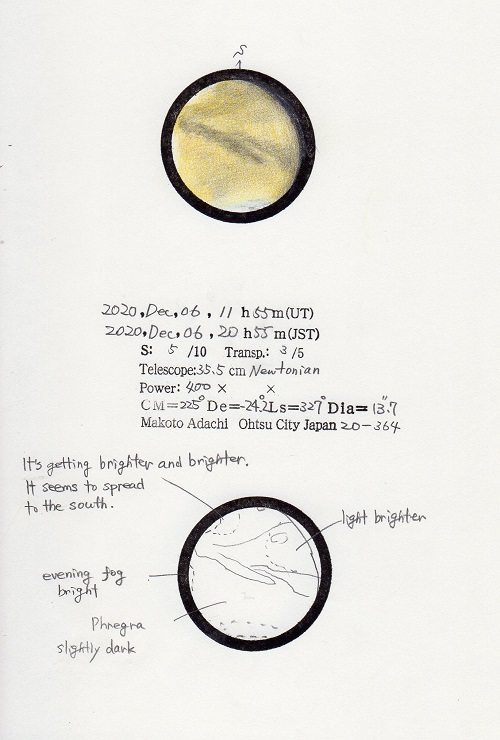 S
2020, Dec, 06, 11 h 55 m (UT)
2020, Dec, 06, 20 h 55 m (JST)
S: 5 /10 Transp.: 3 /5
Telescope: 35.5 cm Newtonian
Power: 400 × ×
CM=225° De=-24.2 Ls=327° Dia= 13.7"
Makoto Adachi Ohtsu City Japan 20-364
It's getting brighter and brighter.
It seems to spread
to the south.
light brighter
evening fog
bright
Phregra
slightly dark